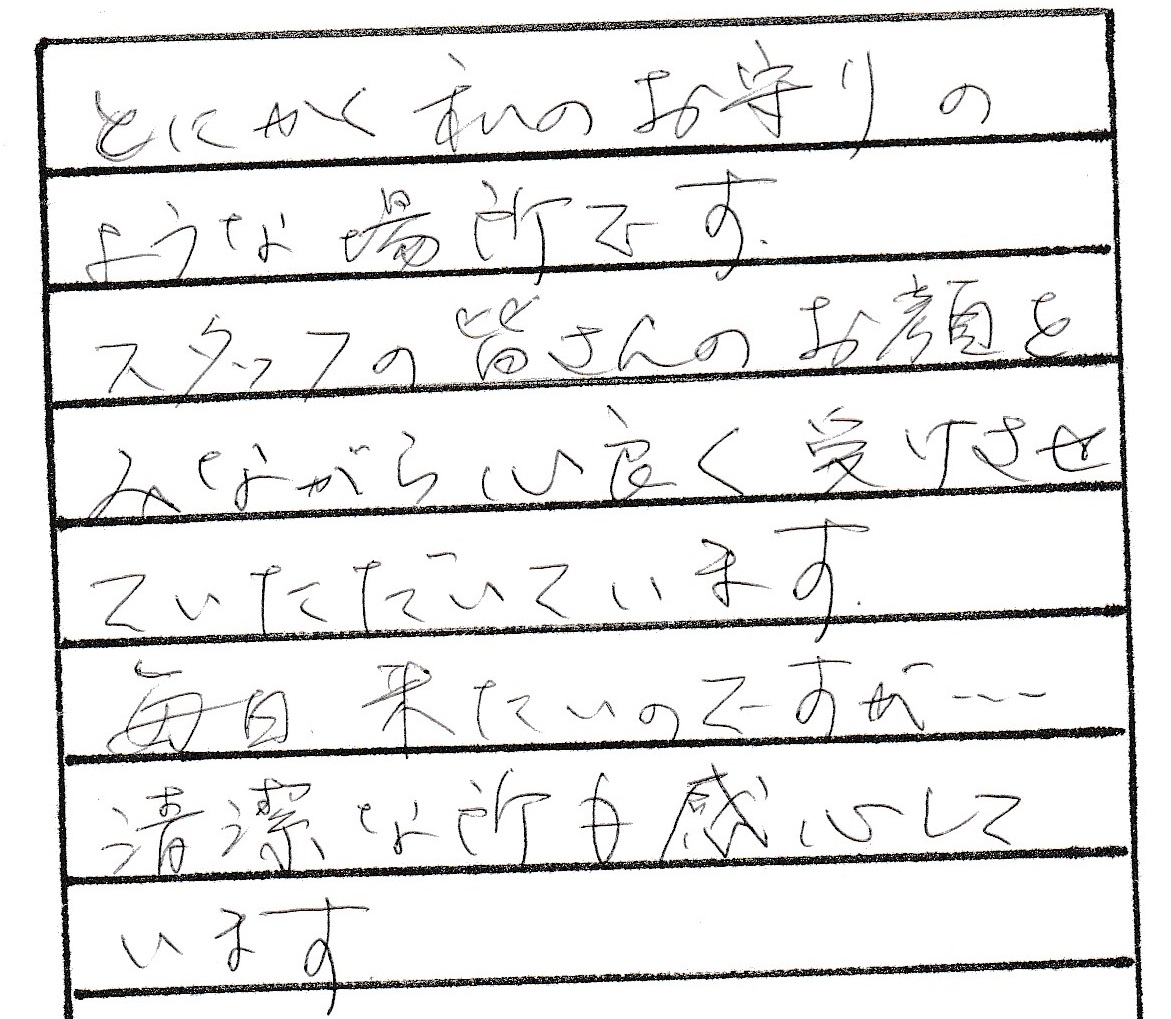 とにかく私のお守りの
ような場所です.
スタッフの皆さんのお顔を
みながら心良く受けさせ
ていただいています.
毎日来たいのですが…
清潔な所も感心して
います